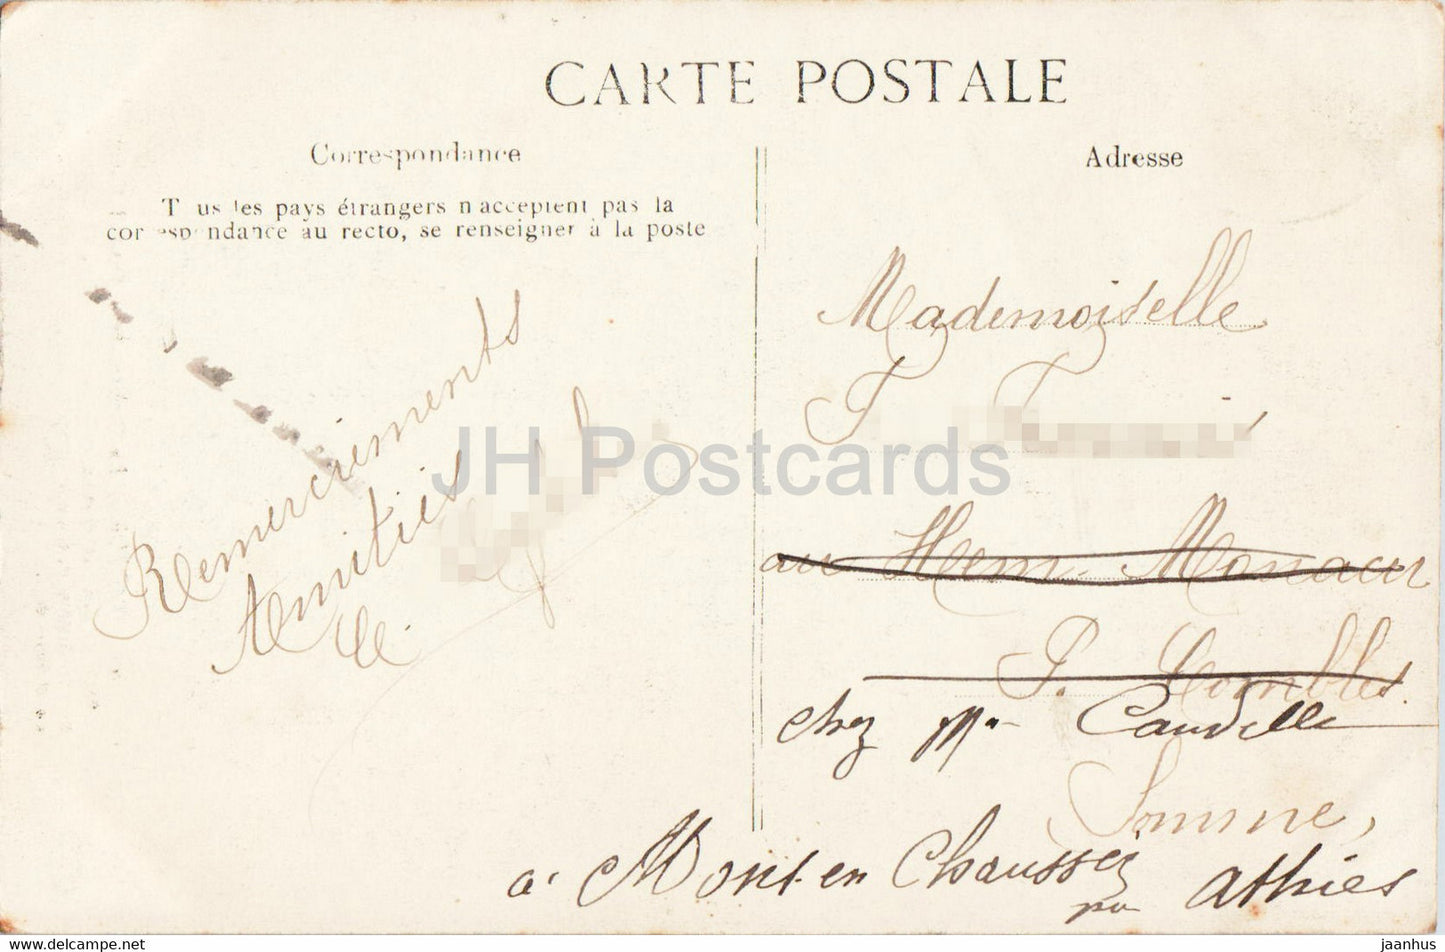 CARTE POSTALE
Correspondance
T us les pays étrangers n'acceptent pas la
correspondance au recto, se renseigner à la poste
Remerciements
Amitiés
Adresse
Mademoiselle
au Hem. Monacu
P. Combles.
chez Mr
Somme,
à Mont en Chaussée
par Athies
JH Postcards
https://www.delcampe.net
jaanhus